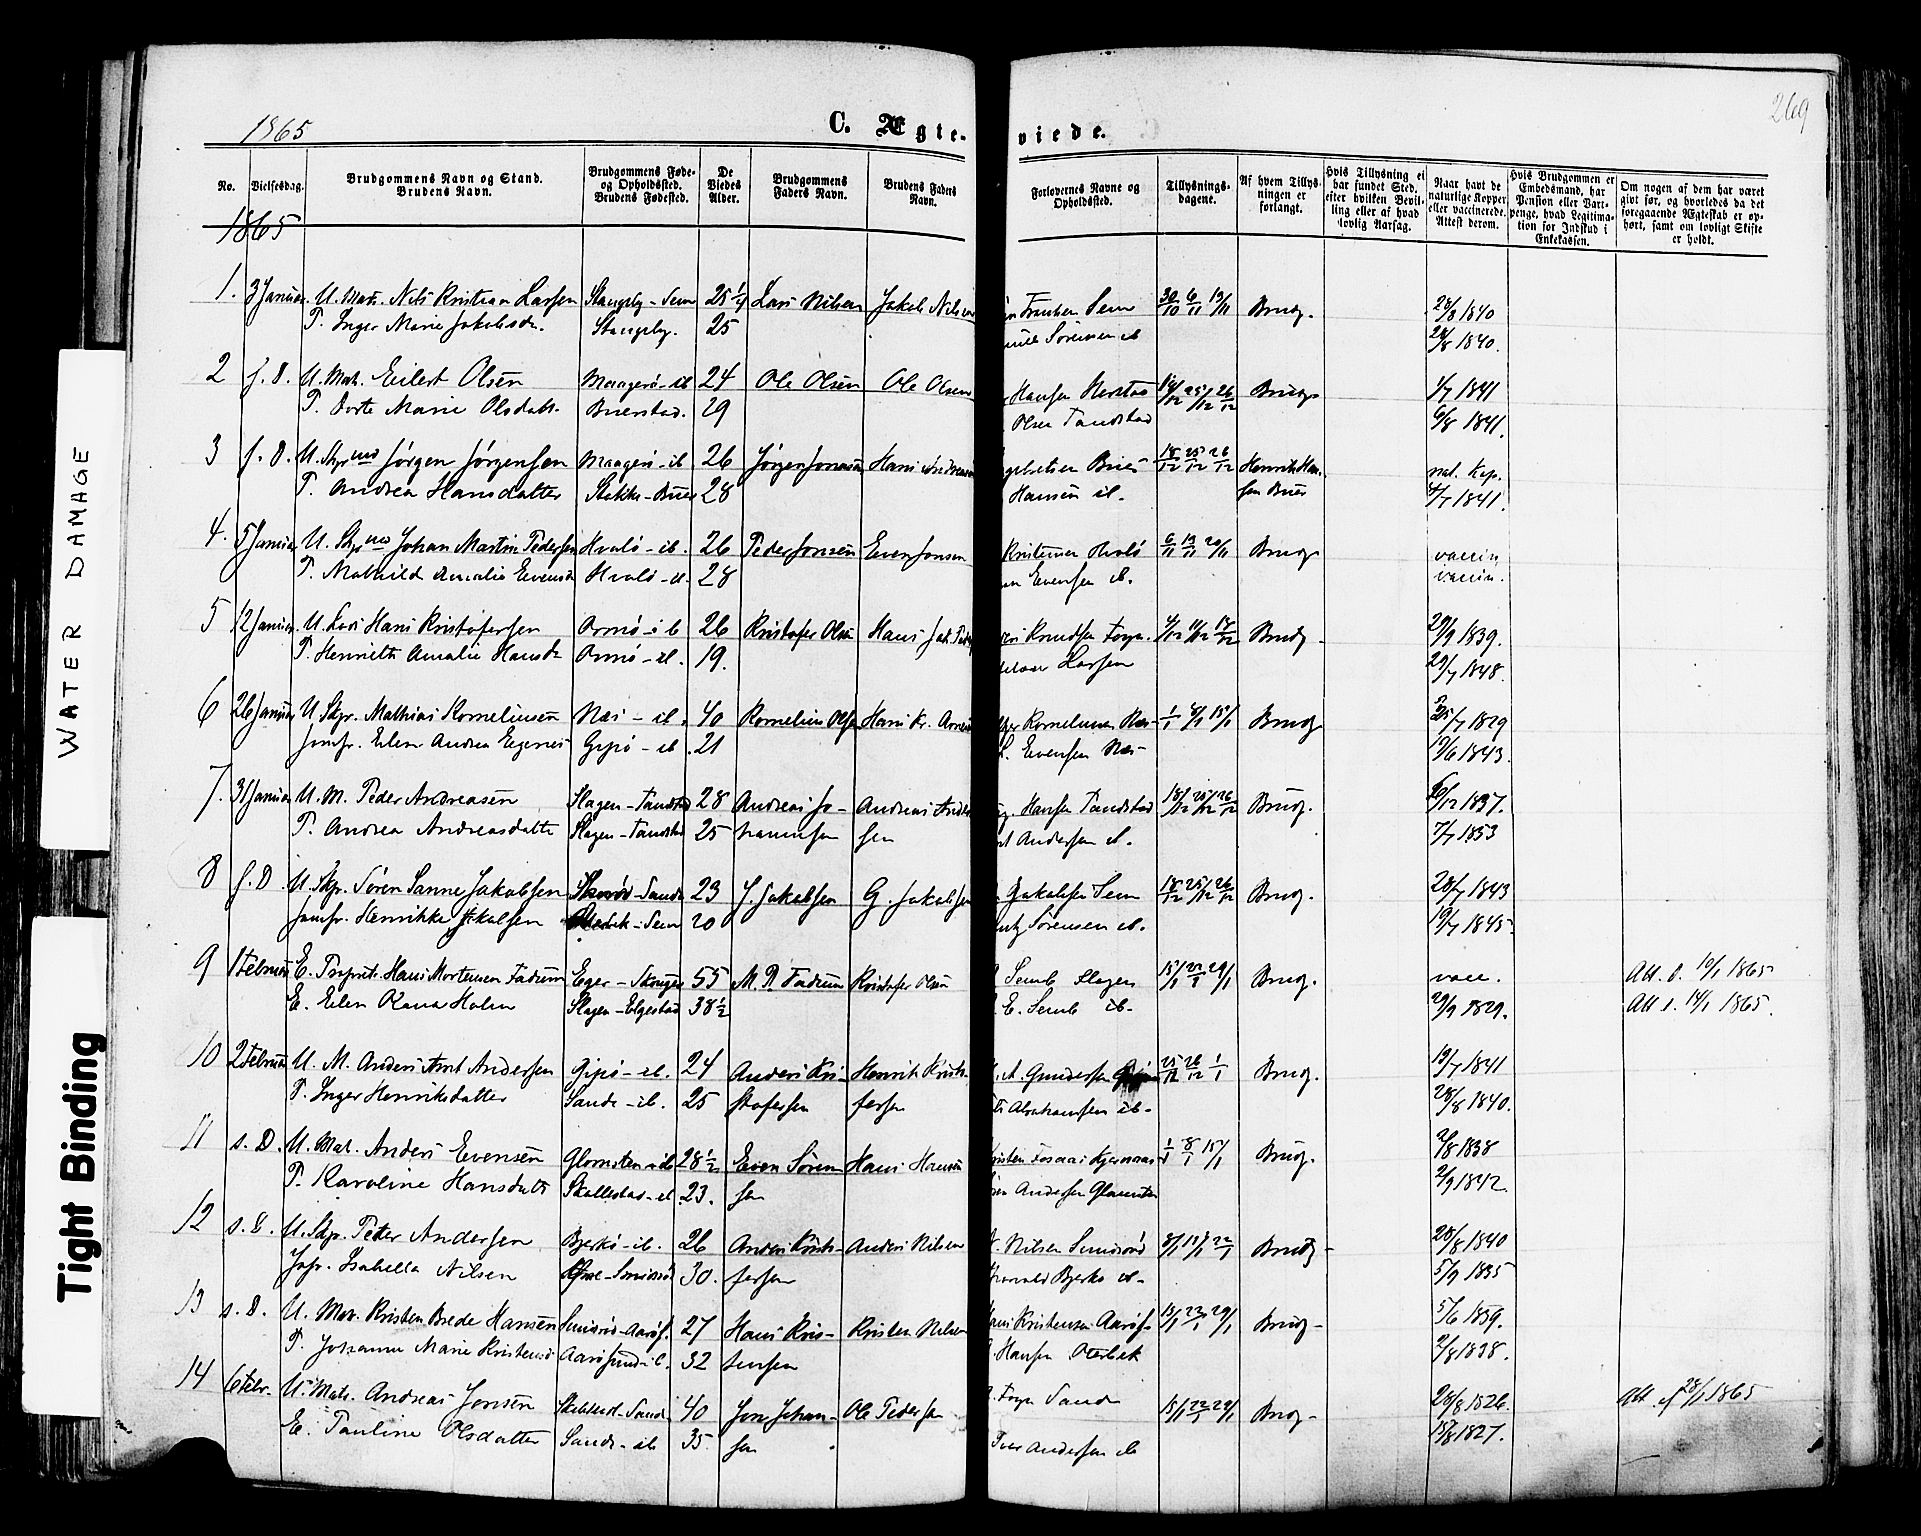 269
1865
C. Ægte-
viede.
No.
Vielsesdag.
Brudgommens Navn og Stand.
Brudens Navn.
Brudgommens Føde-
og Opholdssted.
Brudens Fødested.
De
Viedes
Alder.
Brudgommens
Faders Navn.
Brudens Faders
Navn.
Forlovernes Navne og
Opholdssted.
Tillysnings-
dagene.
Af hvem Tillys-
ningen er
forlangt.
Hvis Tillysning ei
har fundet Sted,
efter hvilken Bevil-
ling eller af hvad
lovlig Aarsag.
Naar havt de
naturlige Kopper
eller vaccinerede.
Attest derom.
Hvis Brudgommen er
Embedsmand, har
Pension eller Vart-
penge, hvad Legitima-
tion for Indskud i
Enkekassen.
Om nogen af dem har været
givt før, og hvorledes da det
foregaaende Ægteskab er op-
hørt, samt om lovligt Skifte
er holdt.
1865
1. 3 Januar U. Matr. Nils Kristian Larsen Stangeby - Sem 25 1/4 Lars Nilsen Jakob Nilsen Frantsen Sem 30/10 6/11 13/11 Brudg. 28/8 1840
P. Inger Marie Jakobsdr. Stangeby. 25 Sørensen ib 28/8 1840.
2 f. D. U. Mat. Eilert Olsen Maagerø - ib 24 Ole Olsen Ole Olsen Hansen 18/12 25/12 26/12 Brudg 1/7 1841
P. Dorte Marie Olsdatt. Buerstad. 29 Olsen Tandstad 6/8 1841.
3 f. D. U. Skpmd Jørgen Jørgensen Maagerø - ib 26 Jørgen Jonassen Hans Andreasen Bues 18/12 25/12 26/12 Henrik Han- nat. Kop.
P. Andrea Hansdatter Stokke - Buer 28 Hansen ib. sen Buer 4/7 1841.
4. 5 Januar U. Skpmd Johan Martin Pedersen Hvalø - ib. 26 Peder Jonsen Even Jonsen Kristensen Hvalø 6/11 13/11 20/11 Brudg vaccin
P. Mathild Amalie Evensd Hvalø - ib. 28 Evensen ib. vaccin.
5 12 Januar U. Lods Hans Kristofersen Ormø - ib 26 Kristofer Olsen Hans Jak. Peders Knudsen 4/12 11/12 18/12 Brudg - 29/9 1839.
P. Henriette Amalie Hansdr Ormø - ib. 19. Larsen 29/7 1848.
6 26 Januar U. Skpr. Mathias Kornelius­sen Næs - ib. 40 Kornelius Olsen Hans Kr. Kornelius­sen Næs - 1/1 8/1 15/1 Brudg 25/7 1829
Jomfr. Elen Andrea Eegenes Gipø - ib. 21 L. Evensen Næs - 19/6 1843.
7. 31 Januar U. M. Peder Andreasen Slagen - Tandstad 28 Andreas Jo- Andreas Ander Hansen Tandstad 18/12 25/12 26/12 Brudg. 6/12 1837.
P. Andrea Andreasdatte Slagen - Tandstad 25 hannesen sen Andersen ib. 7/7 1853
8 f. D. U. Skpr. Søren Sanne Jakobsen Sande 23 J. Jakobsen G. Jakobsen Jakobsen Sem 18/12 25/12 26/12 Brudg. 28/7 1843
Jomfr. Henrikke Jakobsen - Sem 20 Sørensen ib. 19/7 1845.
9 1 Februar E. Propriet. Hans Mortensen Fadum Eger - Skouger 55 M. P. Fadum Kristofer Olsen Semb Slagen 15/1 22/1 29/1 Brudg. vacc. Att. d. 10/1 1865
E. Elen Rana Holm Slagen - Elgestad 38 1/2 E. Semb ib - 29/9 1829. Att. d. 14/1 1865.
10 2 Februar U. M. Anders Arnt Andersen Gipø - ib. 24 Anders Kri- Henrik Kristo- A. Gundersen 25/12 26/12 1/1 Brudg. 19/7 1841
P. Inger Henriksdatter Sande - ib. 25 stofersen fersen Abrahamsen ib - 28/8 1840.
11 s. D. U. Mat. Anders Evensen Glomsten - ib 28 1/2 Even Søren Hans Hansen Kjærnaas 1/1 8/1 15/1 Brudg. 2/8 1838
P. Karoline Hansdatt Skallestad - ib 23. sen Andersen Glomsten 2/9 1842.
12 s. D. U. Skpr. Petter Andersen Bjerkø - ib. 26 Anders Kristo- Anders Nilsen Nilsen Sundrød 8/1 15/1 22/1 Brudg - 28/8 1840
Jofr. Isabella Nilsen - Smidsrød 30. fersen Bjerkø ib - 5/9 1835
13 s. D. U. Mat. Kristen Brede Hansen Smidsrød - Aarøs. 27 Hans Kris- Kristen Nilsen Hans Kristensen Aarøs 15/1 22/1 29/1 Brudg - 5/6 1839.
P. Johanne Marie Kristensd Aarøsund - ib. 32 tensen Hansen Oterbek 2/8 1838.
14 6 Febr. U. Mat. Andreas Jonsen - Sande 40 Jon Johan- Ole Peder sen Foyn Sande 15/1 22/1 29/1 Brudg - 28/8 1826. Att. af 28/1 1865
E. Pauline Olsdatter Sande - ib 35. sen Andersen ib 15/8 1827.
WATER DAMAGE
Tight Binding